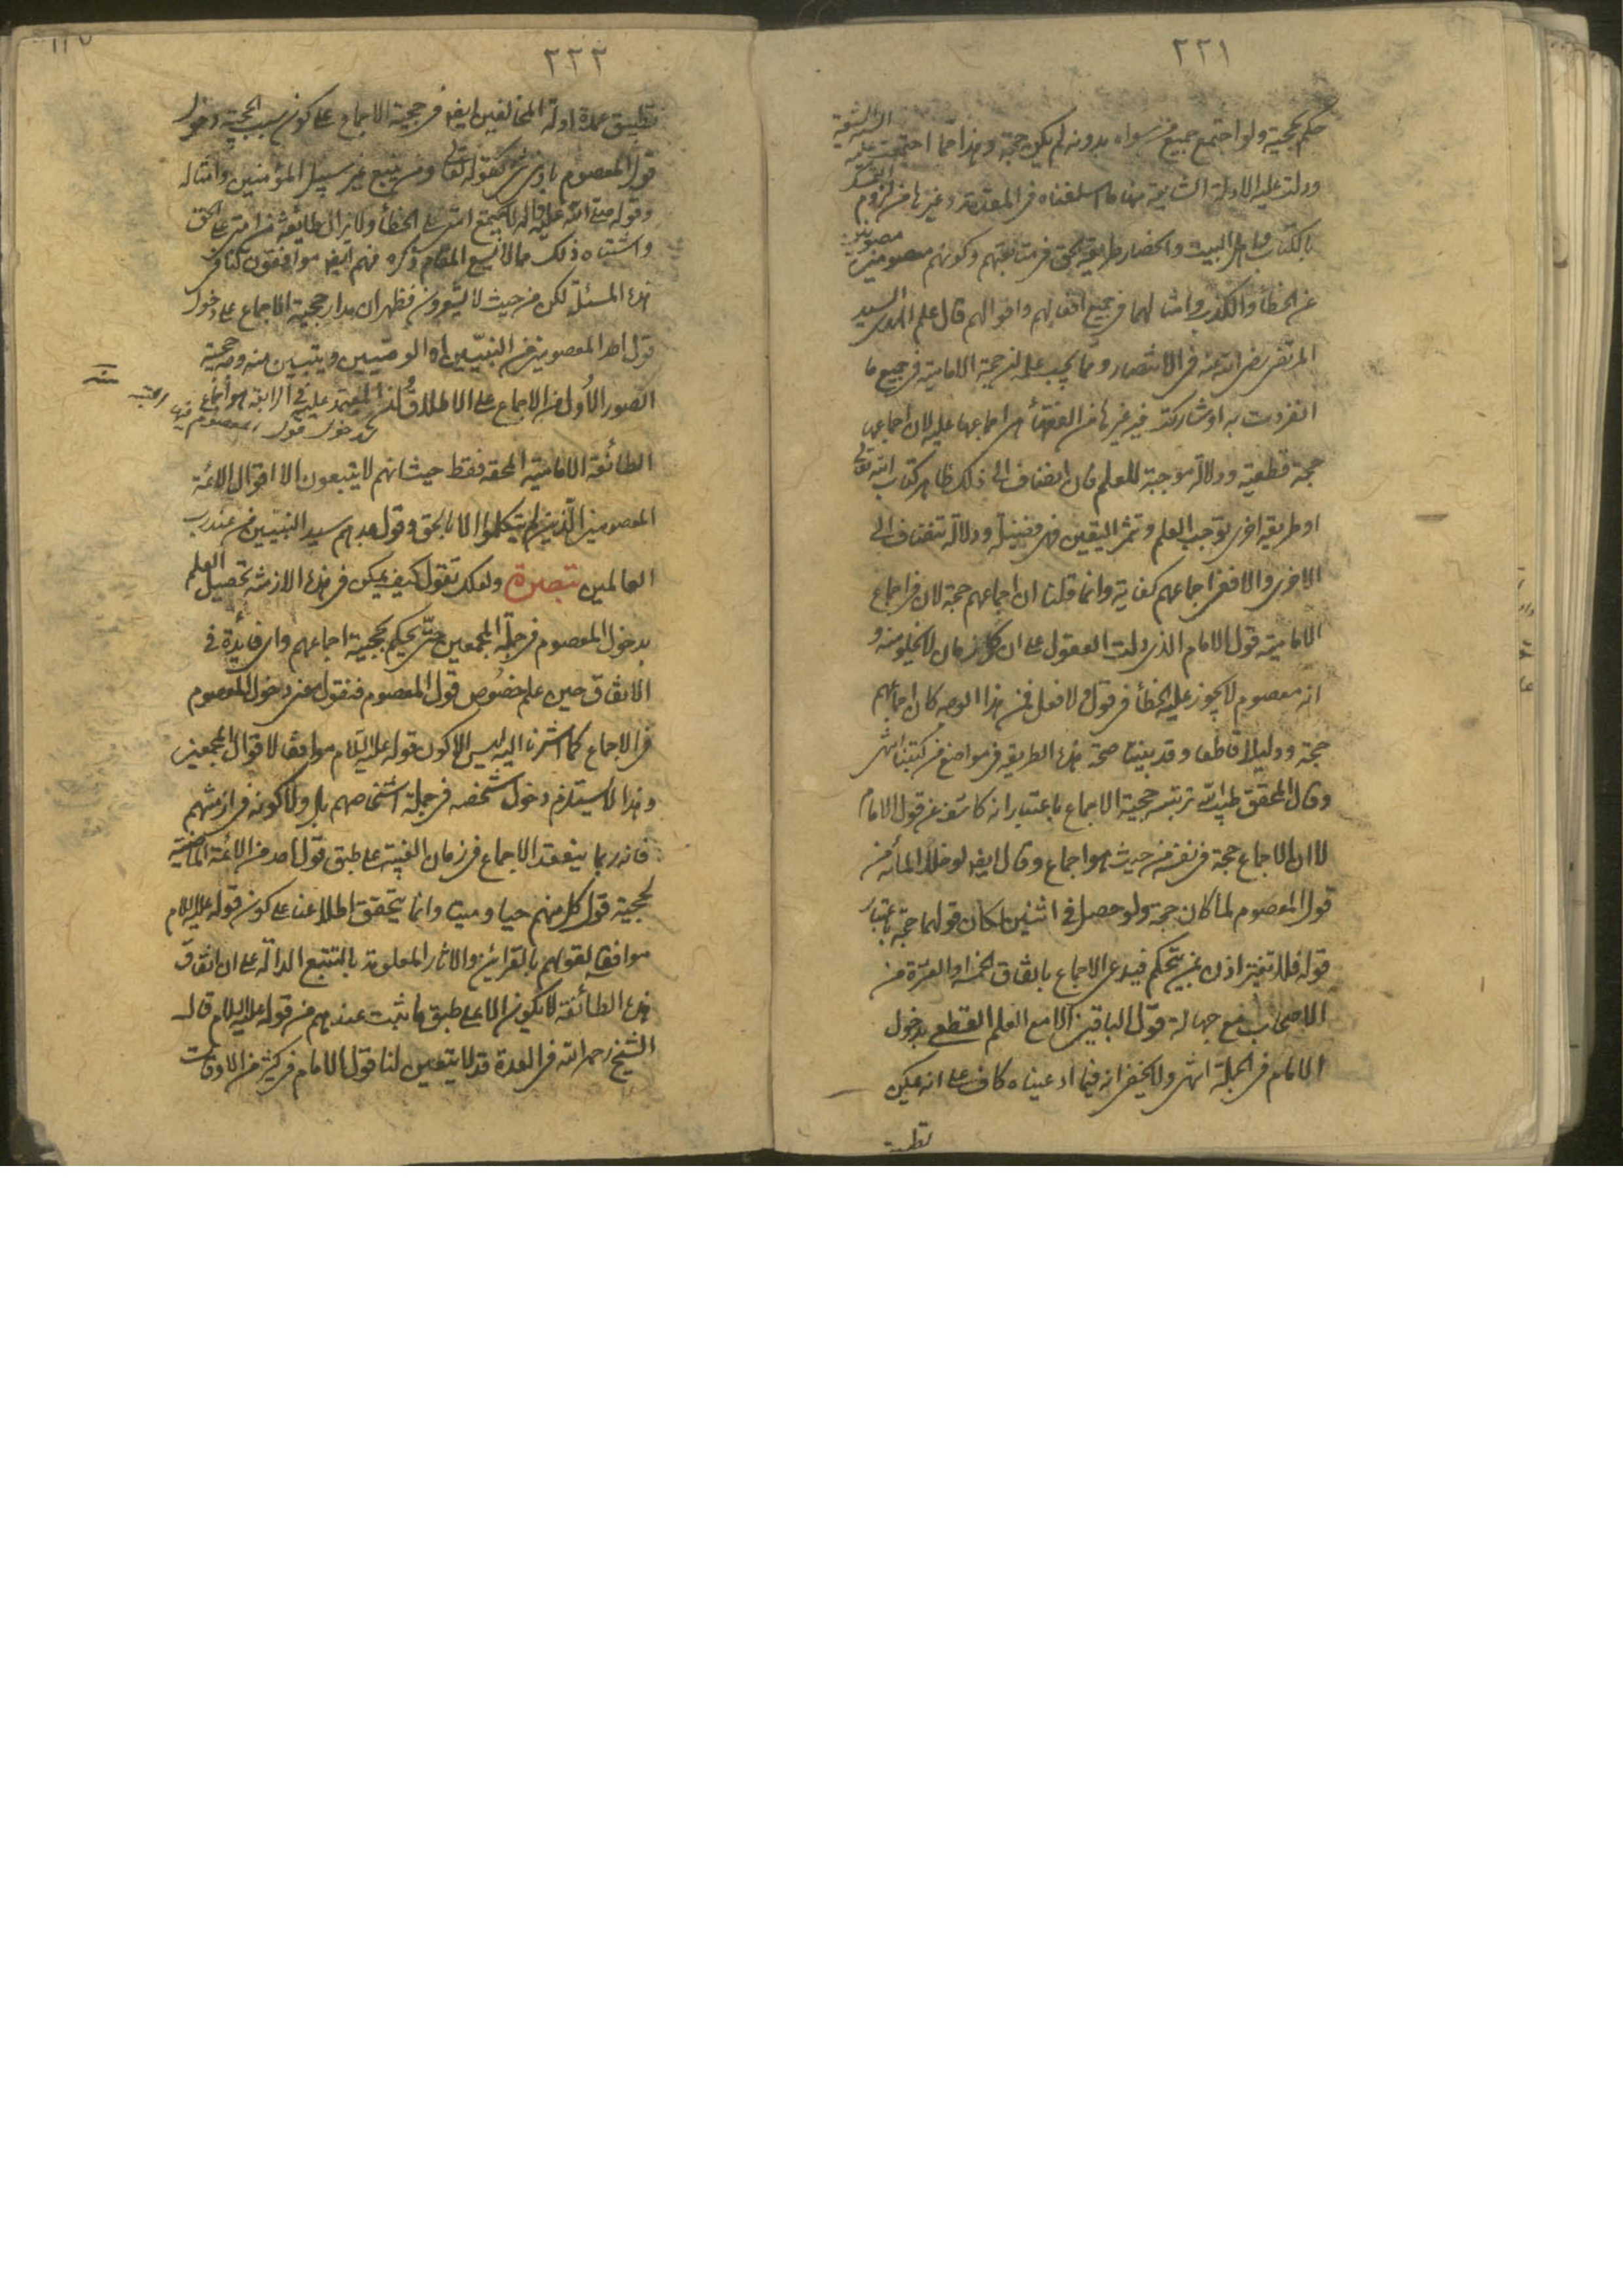 ٢٢١
حكم بحجيته ولو اجتمع جميع من سواه بدونه لم يكن حجة وهذا مما اجتمعت عليه
ودلت عليه الادلة السابقة منها ما اسلفناه فى المقدمة وغيرها من لزوم التمسك
بالكتاب واهل البيت وانحصار طريق الحق فى متابعتهم وكونهم معصومين مصونين
عن الخطأ والكذب وامثالهما فى جميع افعالهم واقوالهم قال علم الهدى السيد
المرتضى رضى الله عنه فى الانتصار ومما يجب علمه ان حجة الامامية فى جميع ما
انفردت به او شاركت فيه غيرها من الفقهاء هى اجماعها عليه لان اجماعها
حجة قطعية ودلالة موجبة للعلم فان انضاف الى ذلك ظاهر كتاب الله تعالى
او طريقة اخرى توجب العلم وتثمر اليقين فهى فضيلة ودلالة تنضاف الى
الاخرى والا ففى اجماعهم كفاية وانما قلنا ان اجماعهم حجة لان فى اجماع
الامامية قول الامام الذى دلت العقول على ان كل زمان لا يخلو منه و
انه معصوم لا يجوز عليه الخطأ فى قول ولا فعل فمن هذا الوجه كان اجماعهم
حجة ودليلا قاطعا وقد بينا صحة هذه الطريقة فى مواضع من كتبنا انتهى
وقال المحقق طيب الله تربته حجية الاجماع باعتبار انه كاشف عن قول الامام
لا ان الاجماع حجة فى نفسه من حيث هو اجماع وقال ايضا لو خلا المأة من
قول المعصوم لما كان حجة ولو حصل فى اثنين لكان قولهما حجة باعتبار
قوله فلا تغتر اذن بمن يتحكم فيدعى الاجماع باتفاق الخمسة او العشرة من
الاصحاب مع جهالة قول الباقين الا مع العلم القطعى بدخول
الامام فى الجملة انتهى ولا يخفى انه فيما ادعيناه كاف على انه يمكن
تطبيق
٢٢٢
تطبيق عمدة ادلة المخالفين ايضا فى حجية الاجماع على كون سبب الحجية دخول
قول المعصوم بادنى شىء كقوله تعالى ومن يتبع غير سبيل المؤمنين وامثاله
وقوله صلى الله عليه وآله لا يجتمع امتى على الخطأ ولا يزال طايفة من امتى على الحق
واشباه ذلك مما لا يسع المقام ذكره فهم ايضا موافقون لنا فى
هذه المسئلة لكن من حيث لا يشعرون فظهر ان مدار حجية الاجماع على دخول
قول احد المعصومين من النبيين او الوصيين ويتبين منه وجه حجية
الصور الاول من الاجماع على الاطلاق وان المعتمد عليه فى الرابعة هو اجماع
لدخول قول المعصوم فيها
الطائفة الامامية المحقة فقط حيث انهم لا يتبعون الا اقوال الائمة
المعصومين الذين لم يتكلموا الا بالحق وقول جدهم سيد النبيين من عند رب
العالمين تبصرة ولعلك تقول كيف يمكن فى هذه الازمنة تحصيل العلم
بدخول المعصوم فى جملة المجمعين حتى يحكم بحجية اجماعهم واى فائدة فى
الاتفاق حين علم خصوص قول المعصوم فنقول معنى دخول المعصوم
فى الاجماع كما اشرنا اليه ليس الا كون قوله عليه السلام موافقا لاقوال المجمعين
وهذا لا يستلزم دخول شخصه فى جملة اشخاصهم بل ولا كونه فى ازمنتهم
فانه ربما ينعقد الاجماع فى زمان الغيبة على طبق قول احد من الائمة الماضية
لحجية قول كل منهم حيا وميتا وانما يتحقق اطلاعنا على كون قوله عليه السلام
موافقا لقولهم بالقرائن والآثار المعلومة بالتتبع الدالة على ان اتفاق
هذه الطائفة لا يكون الا على طبق ما ثبت عندهم من قوله عليه السلام قال
الشيخ رحمه الله فى العدة قد لا يتعين لنا قول الامام فى كثير من الاوقات